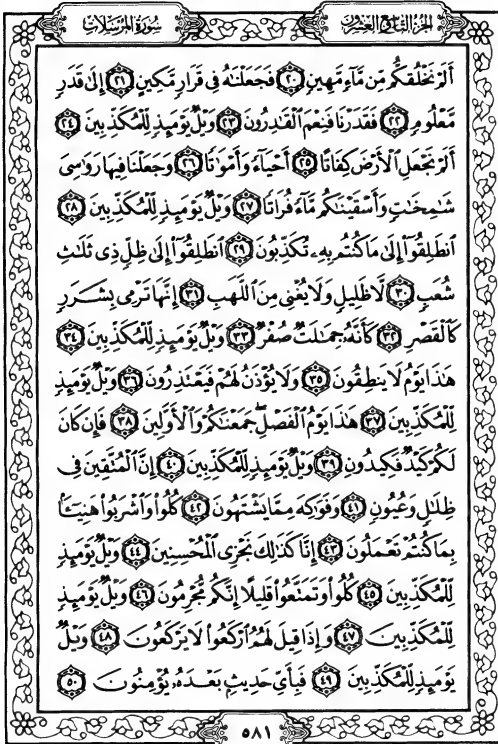 الجزء التاسع والعشرون
سورة المرسلات
أَلَمۡ نَخۡلُقكُّم مِّن مَّآءٖ مَّهِينٖ ٢٠ فَجَعَلۡنَٰهُ فِي قَرَارٖ مَّكِينٍ ٢١ إِلَىٰ قَدَرٖ
مَّعۡلُومٖ ٢٢ فَقَدَرۡنَا فَنِعۡمَ ٱلۡقَٰدِرُونَ ٢٣ وَيۡلٞ يَوۡمَئِذٖ لِّلۡمُكَذِّبِينَ ٢٤
أَلَمۡ نَجۡعَلِ ٱلۡأَرۡضَ كِفَاتًا ٢٥ أَحۡيَآءٗ وَأَمۡوَٰتٗا ٢٦ وَجَعَلۡنَا فِيهَا رَوَٰسِيَ
شَٰمِخَٰتٖ وَأَسۡقَيۡنَٰكُم مَّآءٗ فُرَاتٗا ٢٧ وَيۡلٞ يَوۡمَئِذٖ لِّلۡمُكَذِّبِينَ ٢٨
ٱنطَلِقُوٓاْ إِلَىٰ مَا كُنتُم بِهِۦ تُكَذِّبُونَ ٢٩ ٱنطَلِقُوٓاْ إِلَىٰ ظِلّٖ ذِي ثَلَٰثِ
شُعَبٖ ٣٠ لَّا ظَلِيلٖ وَلَا يُغۡنِي مِنَ ٱللَّهَبِ ٣١ إِنَّهَا تَرۡمِي بِشَرَرٖ
كَٱلۡقَصۡرِ ٣٢ كَأَنَّهُۥ جِمَٰلَتٞ صُفۡرٞ ٣٣ وَيۡلٞ يَوۡمَئِذٖ لِّلۡمُكَذِّبِينَ ٣٤
هَٰذَا يَوۡمُ لَا يَنطِقُونَ ٣٥ وَلَا يُؤۡذَنُ لَهُمۡ فَيَعۡتَذِرُونَ ٣٦ وَيۡلٞ يَوۡمَئِذٖ
لِّلۡمُكَذِّبِينَ ٣٧ هَٰذَا يَوۡمُ ٱلۡفَصۡلِۖ جَمَعۡنَٰكُمۡ وَٱلۡأَوَّلِينَ ٣٨ فَإِن كَانَ
لَكُمۡ كَيۡدٞ فَكِيدُونِ ٣٩ وَيۡلٞ يَوۡمَئِذٖ لِّلۡمُكَذِّبِينَ ٤٠ إِنَّ ٱلۡمُتَّقِينَ فِي
ظِلَٰلٖ وَعُيُونٖ ٤١ وَفَوَٰكِهَ مِمَّا يَشۡتَهُونَ ٤٢ كُلُواْ وَٱشۡرَبُواْ هَنِيٓـَٔۢا
بِمَا كُنتُمۡ تَعۡمَلُونَ ٤٣ إِنَّا كَذَٰلِكَ نَجۡزِي ٱلۡمُحۡسِنِينَ ٤٤ وَيۡلٞ يَوۡمَئِذٖ
لِّلۡمُكَذِّبِينَ ٤٥ كُلُواْ وَتَمَتَّعُواْ قَلِيلًا إِنَّكُم مُّجۡرِمُونَ ٤٦ وَيۡلٞ يَوۡمَئِذٖ
لِّلۡمُكَذِّبِينَ ٤٧ وَإِذَا قِيلَ لَهُمُ ٱرۡكَعُواْ لَا يَرۡكَعُونَ ٤٨ وَيۡلٞ
يَوۡمَئِذٖ لِّلۡمُكَذِّبِينَ ٤٩ فَبِأَيِّ حَدِيثِۭ بَعۡدَهُۥ يُؤۡمِنُونَ ٥٠
٥٨١